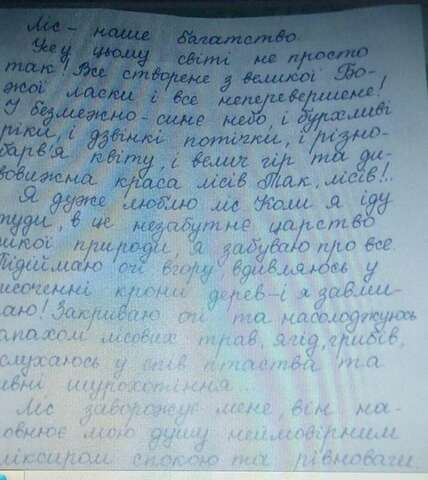 Ліс - наше багатство.
Усе у цьому світі не просто
так! Все створене з великої Бо-
жої ласки і все неперевершене!
І безмежно-синє небо, і бурхливі
ріки, і дзвінкі потічки, і різно-
барв'я квіту, і велич гір та ди-
вовижна краса лісів. Так, лісів!..
Я дуже люблю ліс. Коли я іду
туди, в це незабутнє царство
икої природи, я забуваю про все.
Підіймаю очі вгору, вдивляюсь у
исоченні крони дерев-і я завми-
аю! Закриваю очі та насолоджуюсь
апахом лісових трав, ягід, грибів,
слухаюсь у спів птаства та
ивні шурохотіння...
Ліс заворожує мене, він на-
овнює мою душу неймовірним
ліксиром спокою та рівноваги.